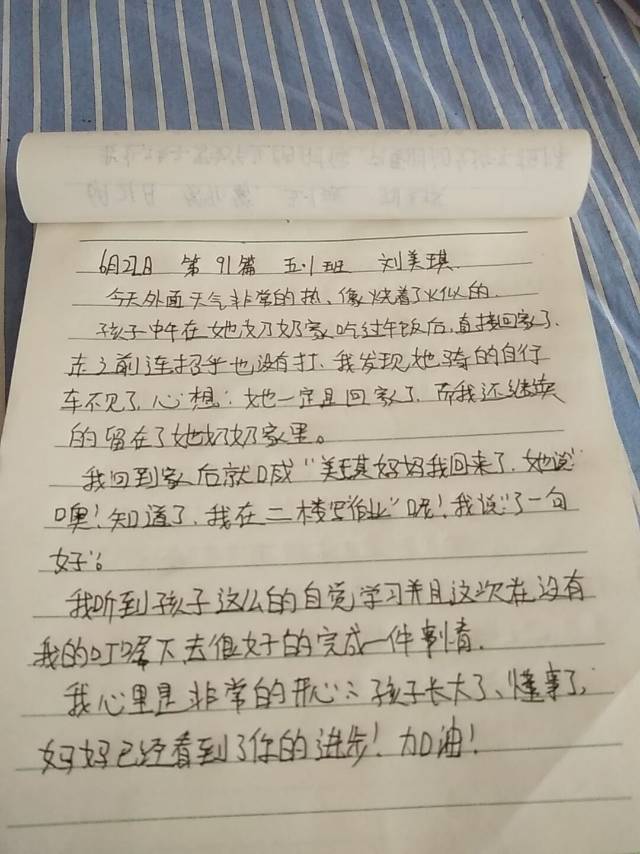 6月27日 第91篇 五.1班 刘美琪
今天外面天气非常的热、像烧着了火似的.
孩子中午在她奶奶家吃过午饭后,直接回家了.
走之前连招乎也没有打、我发现她骑的自行
车不见了.心想:她一定是回家了.而我还继续
的留在了她奶奶家里。
我回到家后就喊“美琪妈妈我回来了.她说:
噢!知道了.我在二楼写作业”呢!我说:“了一句
好”。
我听到孩子这么的自觉学习并且这次在没有
我的叮嘱下去很好的完成一件事情.
我心里是非常的开心:孩子长大了、懂事了,
妈妈已经看到了你的进步!加油!